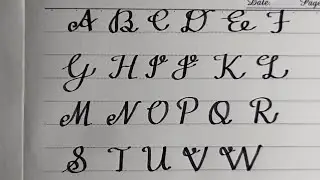 Date. Page
A B C D E F
G H I J K L
M N O P Q R
S T U V W